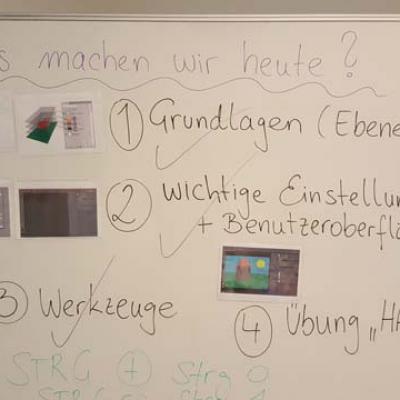 s machen wir heute?
① Grundlagen (Ebene
② wichtige Einstellun
+ Benutzeroberflä
③ Werkzeuge
④ Übung „HA
STRG + Strg 0